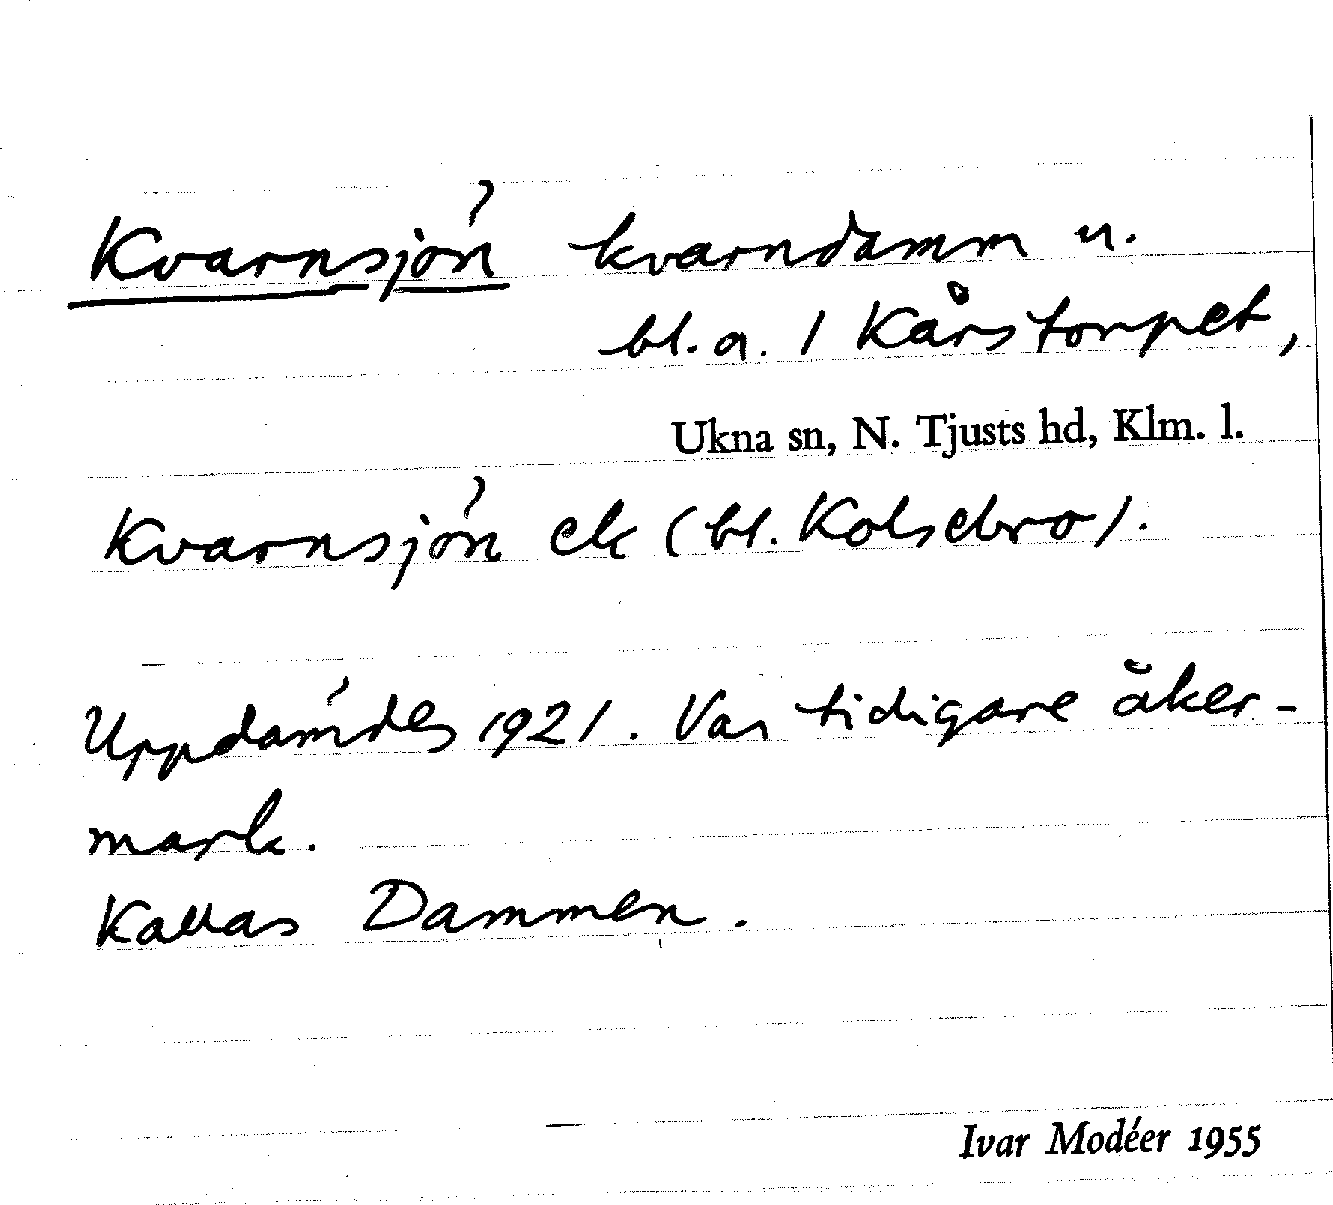 Kvarnsjön kvarndamm u.
bl. a. 1 Kårstorpet,
Ukna sn, N. Tjusts hd, Klm. l.
Kvarnsjön ek (bl. Kolsebro).
Uppdämdes 1921. Var tidigare åker-
mark.
Kallas Dammen.
Ivar Modéer 1955